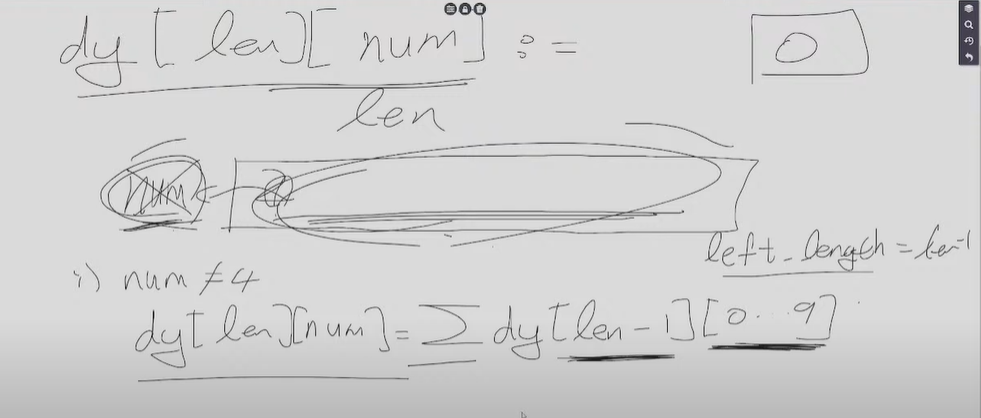 dy[len][num] :=
0
len
num
left_length = len-1
i) num ≠ 4
dy[len][num] = ∑ dy[len-1][0...9]